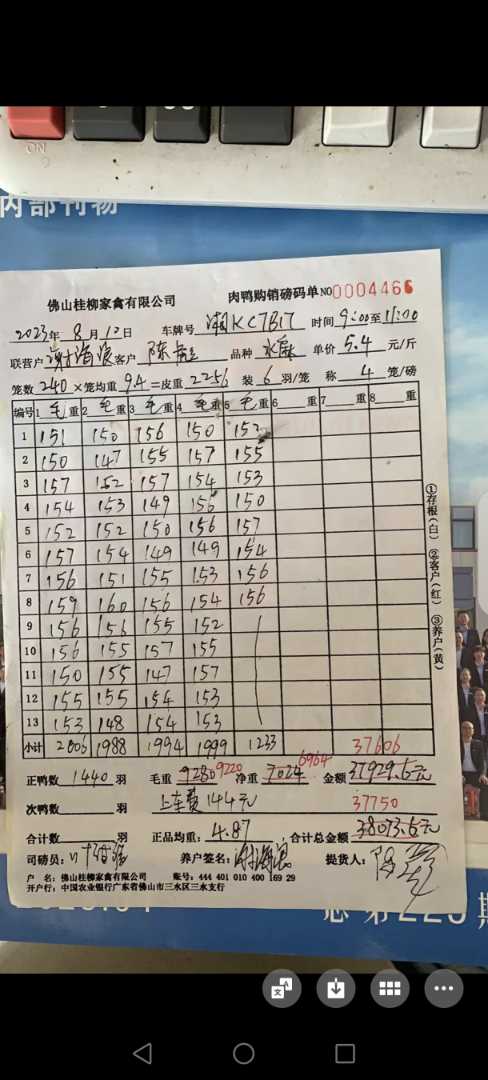 ON
内部刊物
佛山桂柳家禽有限公司 肉鸭购销磅码单 NO 0004466
2023年 8月 12日 车牌号 湘KC7B17 时间 9:00至11:00
联营户 客户 陈 品种 水 单价 5.4 元/斤
笼数 240 ×笼均重 9.4 =皮重 2256 装 6 羽/笼 称 4 笼/磅
编号 1 毛重 2 毛重 3 毛重 4 毛重 5 毛重 6 重 7 重 8 重
1 151 150 156 150 152
2 150 147 155 157 155
3 157 152 157 154 153
4 154 153 149 156 150
5 152 152 150 156 157
6 157 154 149 149 154
7 156 151 155 153 156
8 159 160 156 154 156
9 156 156 155 152
10 156 155 157 155
11 150 155 147 157
12 155 155 154 153
13 153 148 154 153
小计 2006 1988 1994 1999 1233 37606
正鸭数 1440 羽 毛重 9280 9220 净重 7024 6964 金额 37929.6元
次鸭数 羽 上车费144元 37750
合计数 羽 正品均重: 4.87 ,合计总金额 38073.6元
司磅员: 养户签名: 提货人:
户 名: 佛山桂柳家禽有限公司 账号: 444 401 010 400 169 29
开户行: 中国农业银行广东省佛山市三水区三水支行
①存根(白) ②客户(红) ③养户(黄)
总第225期